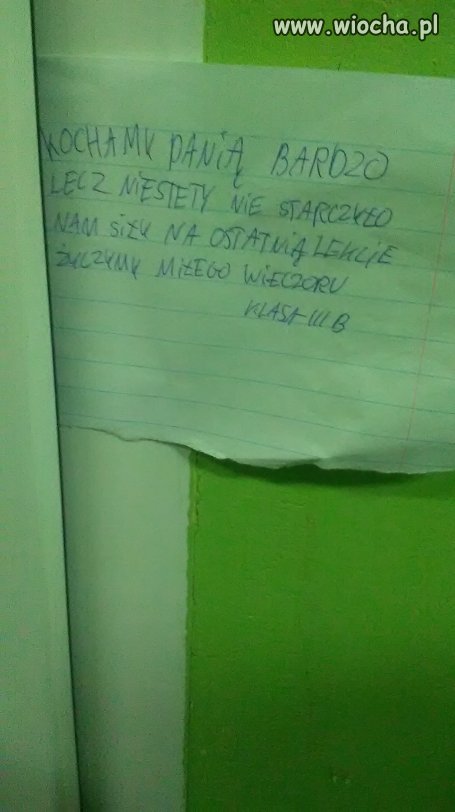 www.wiocha.pl
KOCHAMY PANIĄ BARDZO
LECZ NIESTETY NIE STARCZYŁO
NAM SIŁY NA OSTATNIĄ LEKCJE
ŻYCZYMY MIŁEGO WIECZORU
KLASA III B